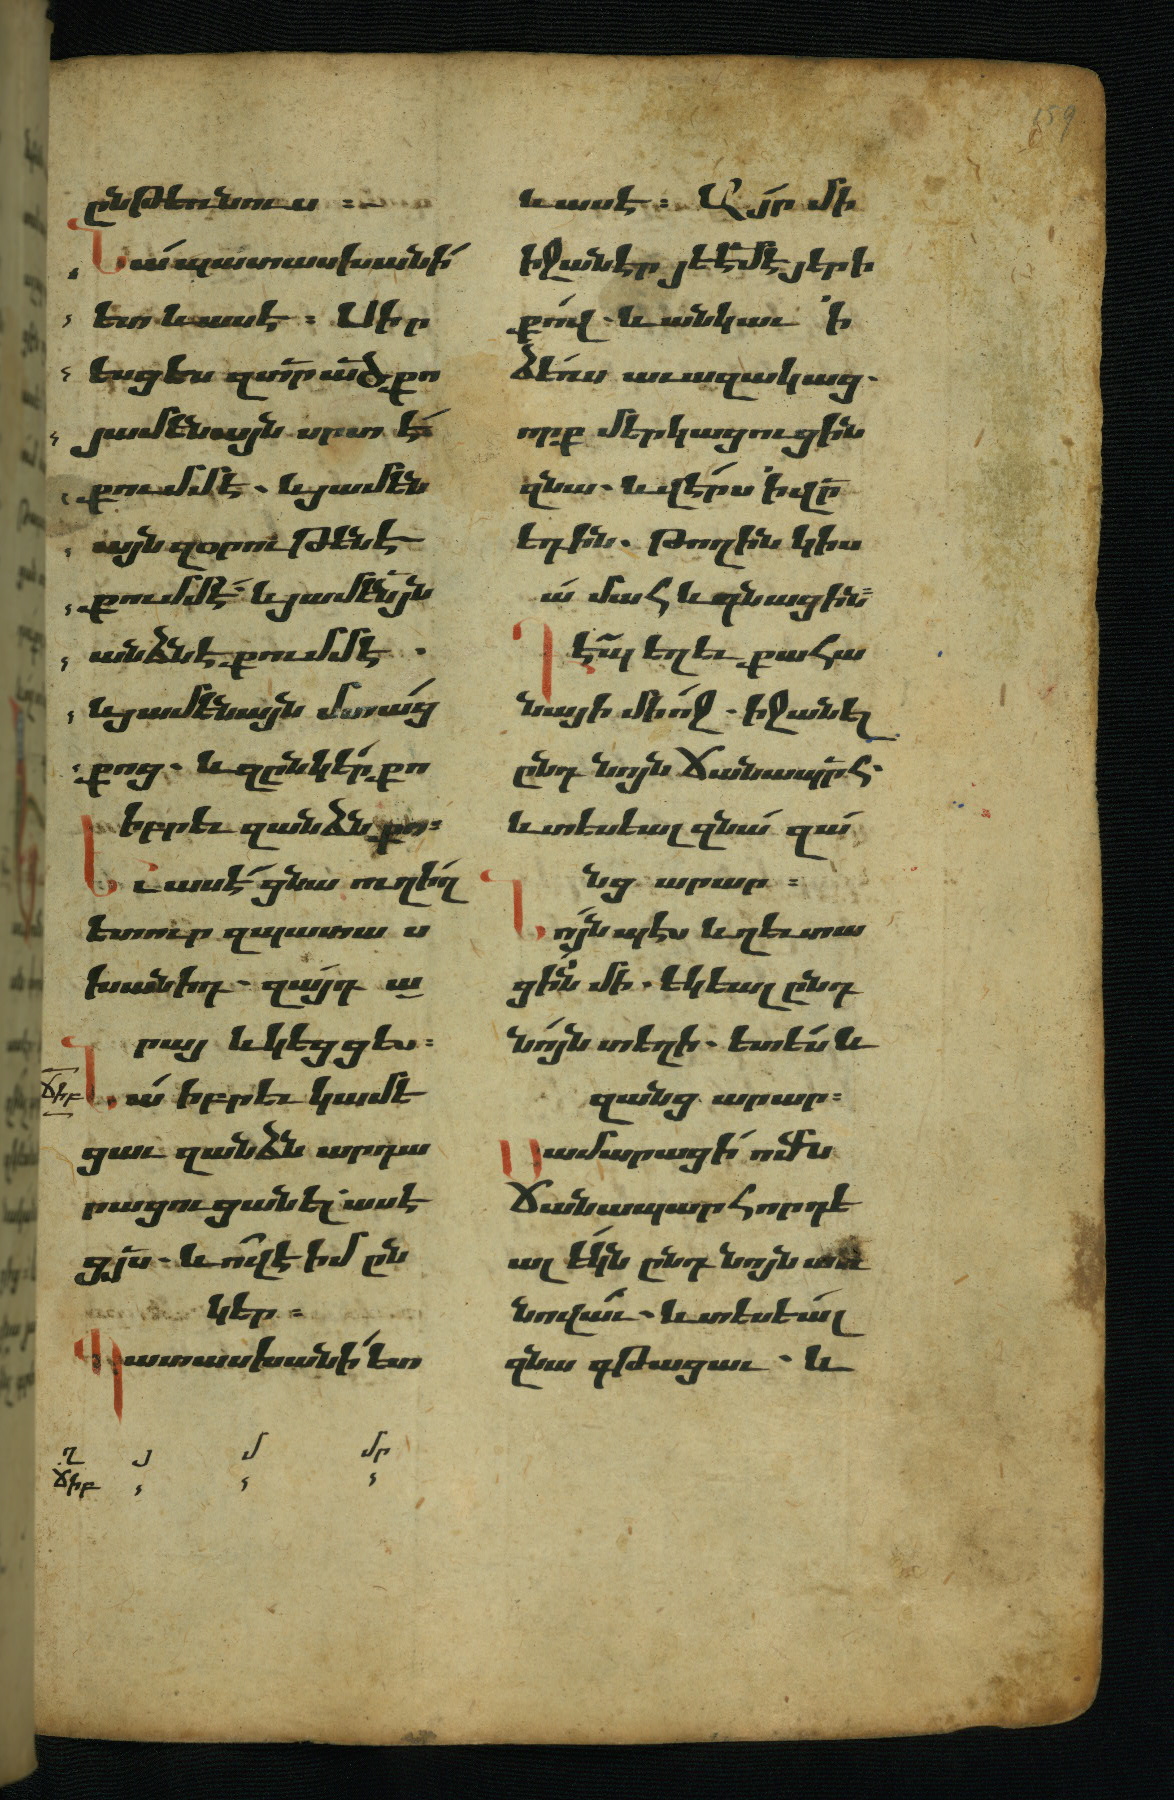 159
ընթեռնուս ։
Նա պատասխանի
ետ և ասէ ։ Սիր
եսցես զտր ած քո
յամենայն սրտ է
քումմէ . և յամեն
այն զօրութենէ
քումմէ և յամենյն
անձնէ քումմէ .
և յամենայն մտաց
քոց . և զընկեր քո
իբրև զանձն քո ։
Եւ ասէ ցնա ուղիղ
ետուր զպատա ս
խանիդ . զայդ ա
րայ և կեցցես ։
Նա իբրև կամե
ցաւ զանձն արդա
րացուցանել ասէ
ցյս . և ով է իմ ըն
կեր ։
Պատասխանի ետ
և ասէ ։ Այր մի
իջանէր յեէմէ յերի
քով . և անկաւ ՛ի
ձեռս աւազակաց .
որք մերկացուցին
զնա . և վերս ՛ի վր
եդին . թողին կիս
ա մահ և գնացին ։
Դէպ եղև քահա
նայի միոջ . իջանել
ընդ նոյն ճանապրհ .
և տեսեալ զնա զա
նց արար ։
Նոյնպէս և ղևտա
ցին մի . եկեալ ընդ
նոյն տեղի . ետես և
զանց արար ։
Սամարացի ոմն
ճանապարհորդե
ալ եկն ընդ նոյն առ
նովաւ . և տեսեալ
զնա գթացաւ . և
ճիբ
ղ յ մ մր
ճիբ